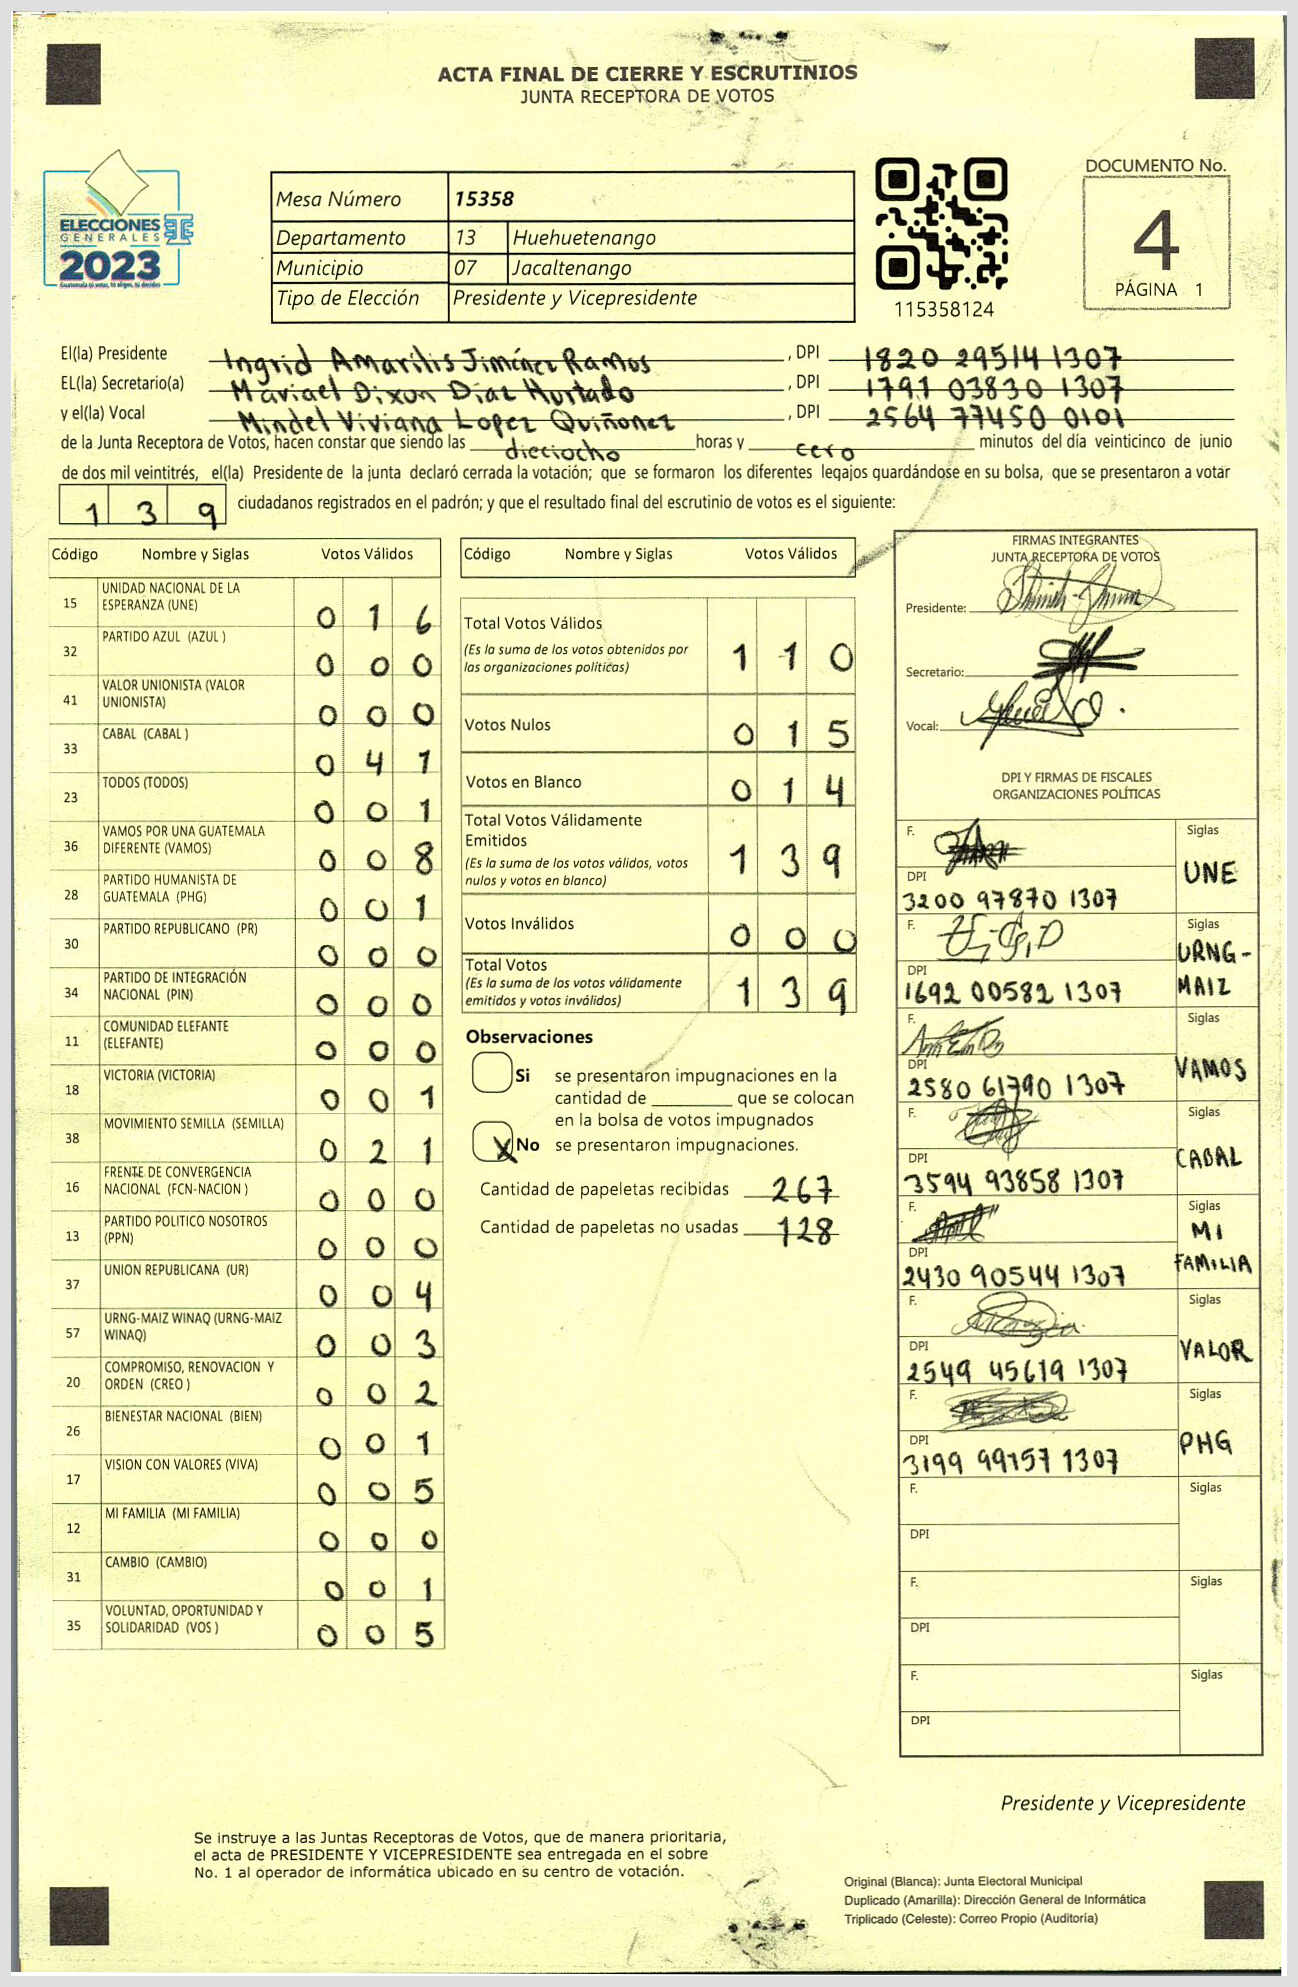 ACTA FINAL DE CIERRE Y ESCRUTINIOS
JUNTA RECEPTORA DE VOTOS
ELECCIONES
GENERALES
2023
Mesa Número 15358
Departamento 13 Huehuetenango
Municipio 07 Jacaltenango
Tipo de Elección Presidente y Vicepresidente
115358124
DOCUMENTO No.
4
PÁGINA 1
El(la) Presidente Ingrid Amarilis Jiménez Ramos, DPI 1820 29514 1307
EL(la) Secretario(a) Maviael Dixon Diaz Hurtado, DPI 1791 03830 1307
y el(la) Vocal Mindel Viviana Lopez Quiñonez, DPI 2564 77450 0101
de la Junta Receptora de Votos, hacen constar que siendo las dieciocho horas y cero minutos del día veinticinco de junio
de dos mil veintitrés, el(la) Presidente de la junta declaró cerrada la votación; que se formaron los diferentes legajos guardándose en su bolsa, que se presentaron a votar
139 ciudadanos registrados en el padrón; y que el resultado final del escrutinio de votos es el siguiente:
Código Nombre y Siglas Votos Válidos
15 UNIDAD NACIONAL DE LA
ESPERANZA (UNE) 016
32 PARTIDO AZUL (AZUL ) 000
41 VALOR UNIONISTA (VALOR
UNIONISTA) 000
33 CABAL (CABAL ) 041
23 TODOS (TODOS) 001
36 VAMOS POR UNA GUATEMALA
DIFERENTE (VAMOS) 008
28 PARTIDO HUMANISTA DE
GUATEMALA (PHG) 001
30 PARTIDO REPUBLICANO (PR) 000
34 PARTIDO DE INTEGRACIÓN
NACIONAL (PIN) 000
11 COMUNIDAD ELEFANTE
(ELEFANTE) 000
18 VICTORIA (VICTORIA) 001
38 MOVIMIENTO SEMILLA (SEMILLA) 021
16 FRENTE DE CONVERGENCIA
NACIONAL (FCN-NACION ) 000
13 PARTIDO POLITICO NOSOTROS
(PPN) 000
37 UNION REPUBLICANA (UR) 004
57 URNG-MAIZ WINAQ (URNG-MAIZ
WINAQ) 003
20 COMPROMISO, RENOVACION Y
ORDEN (CREO ) 002
26 BIENESTAR NACIONAL (BIEN) 001
17 VISION CON VALORES (VIVA) 005
12 MI FAMILIA (MI FAMILIA) 000
31 CAMBIO (CAMBIO) 001
35 VOLUNTAD, OPORTUNIDAD Y
SOLIDARIDAD (VOS ) 005
Código Nombre y Siglas Votos Válidos
Total Votos Válidos
(Es la suma de los votos obtenidos por
las organizaciones políticas) 110
Votos Nulos 015
Votos en Blanco 014
Total Votos Válidamente
Emitidos
(Es la suma de los votos válidos, votos
nulos y votos en blanco) 139
Votos Inválidos 000
Total Votos
(Es la suma de los votos válidamente
emitidos y votos inválidos) 139
Observaciones
Si se presentaron impugnaciones en la
cantidad de ________ que se colocan
en la bolsa de votos impugnados
X No se presentaron impugnaciones.
Cantidad de papeletas recibidas 267
Cantidad de papeletas no usadas 128
FIRMAS INTEGRANTES
JUNTA RECEPTORA DE VOTOS
Presidente:
Secretario:
Vocal:
DPI Y FIRMAS DE FISCALES
ORGANIZACIONES POLÍTICAS
F. Siglas
UNE
DPI
3200 97870 1307
F. Siglas
URNG-
MAIZ
DPI
1692 00582 1307
F. Siglas
VAMOS
DPI
2580 61790 1307
F. Siglas
CABAL
DPI
3594 93858 1307
F. Siglas
MI
FAMILIA
DPI
2430 90544 1307
F. Siglas
VALOR
DPI
2549 45619 1307
F. Siglas
PHG
DPI
3199 99157 1307
F. Siglas
DPI
F. Siglas
DPI
F. Siglas
DPI
Presidente y Vicepresidente
Se instruye a las Juntas Receptoras de Votos, que de manera prioritaria,
el acta de PRESIDENTE Y VICEPRESIDENTE sea entregada en el sobre
No. 1 al operador de informática ubicado en su centro de votación.
Original (Blanca): Junta Electoral Municipal
Duplicado (Amarilla): Dirección General de Informática
Triplicado (Celeste): Correo Propio (Auditoría)